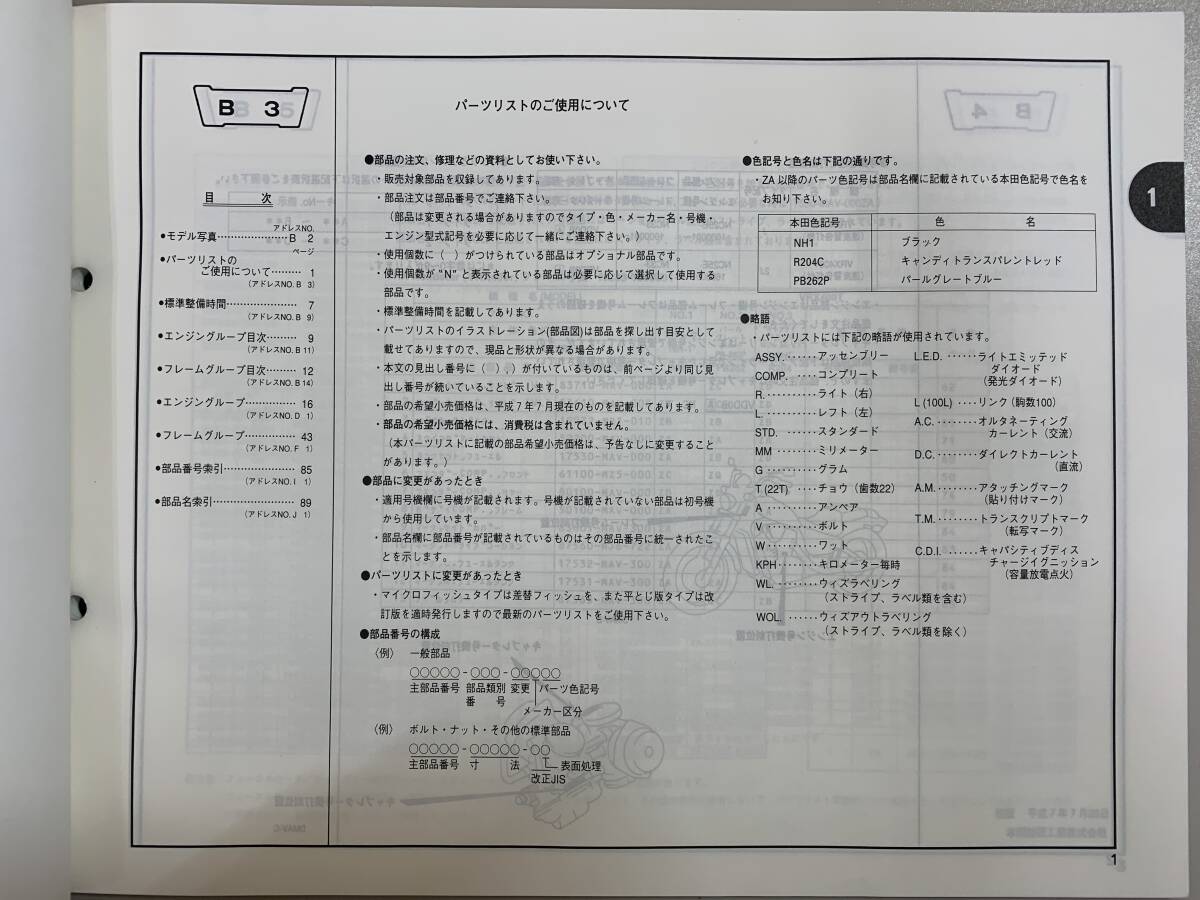 B 3
パーツリストのご使用について
目 次
アドレスNO.
●モデル写真…………………B 2
ページ
●パーツリストの
ご使用について……… 1
(アドレスNO. B 3)
●標準整備時間………………… 7
(アドレスNO. B 9)
●エンジングループ目次……… 9
(アドレスNO. B 11)
●フレームグループ目次……… 12
(アドレスNO. B 14)
●エンジングループ…………… 16
(アドレスNO. D 1)
●フレームグループ…………… 43
(アドレスNO. F 1)
●部品番号索引………………… 85
(アドレスNO. I 1)
●部品名索引…………………… 89
(アドレスNO. J 1)
●部品の注文、修理などの資料としてお使い下さい。
・販売対象部品を収録してあります。
・部品注文は部品番号でご連絡下さい。
(部品は変更される場合がありますのでタイプ・色・メーカー名・号機・
エンジン型式記号を必要に応じて一緒にご連絡下さい。)
・使用個数に( )がつけられている部品はオプショナル部品です。
・使用個数が“N”と表示されている部品は必要に応じて選択して使用する
部品です。
・標準整備時間を記載してあります。
・パーツリストのイラストレーション(部品図)は部品を探し出す目安として
載せてありますので、現品と形状が異なる場合があります。
・本文の見出し番号に( )、)が付いているものは、前ページより同じ見
出し番号が続いていることを示します。
・部品の希望小売価格は、平成7年7月現在のものを記載してあります。
・部品の希望小売価格には、消費税は含まれていません。
(本パーツリストに記載の部品希望小売価格は、予告なしに変更すること
があります。)
●部品に変更があったとき
・適用号機欄に号機が記載されます。号機が記載されていない部品は初号機
から使用しています。
・部品名欄に部品番号が記載されているものはその部品番号に統一されたこ
とを示します。
●パーツリストに変更があったとき
・マイクロフィッシュタイプは差替フィッシュを、また平とじ版タイプは改
訂版を適時発行しますので最新のパーツリストをご使用下さい。
●部品番号の構成
(例) 一般部品
○○○○○-○○○-○○○○○
主部品番号 部品類別 変更 パーツ色記号
番 号
メーカー区分
(例) ボルト・ナット・その他の標準部品
○○○○○-○○○○○-○○
主部品番号 寸 法 表面処理
改正JIS
●色記号と色名は下記の通りです。
・ZA以降のパーツ色記号は部品名欄に記載されている本田色記号で色名を
お知り下さい。
本田色記号 色 名
NH1 ブラック
R204C キャンディトランスパレントレッド
PB262P パールグレートブルー
●略語
・パーツリストには下記の略語が使用されています。
ASSY.······アッセンブリー
COMP.····コンプリート
R.··········ライト(右)
L.··········レフト(左)
STD.······スタンダード
MM········ミリメーター
G··········グラム
T (22T)····チョウ(歯数22)
A··········アンペア
V··········ボルト
W··········ワット
KPH········キロメーター毎時
WL.········ウィズラベリング
(ストライプ、ラベル類を含む)
WOL.······ウィズアウトラベリング
(ストライプ、ラベル類を除く)
L.E.D.······ライトエミッテッド
ダイオード
(発光ダイオード)
L (100L)····リンク(駒数100)
A.C.········オルタネーティング
カーレント(交流)
D.C.········ダイレクトカーレント
(直流)
A.M.········アタッチングマーク
(貼り付けマーク)
T.M.········トランスクリプトマーク
(転写マーク)
C.D.I.······キャパシティブディス
チャージイグニッション
(容量放電点火)
1
1